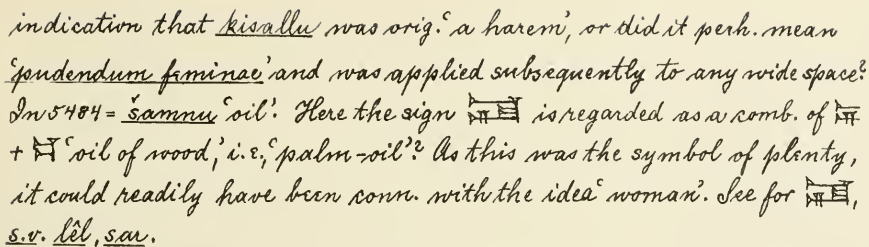 indication that kisallu was orig. 'a harem', or did it perh. mean
'pudendum feminae' and was applied subsequently to any wide space?
In 5484 = šamnu 'oil'. Here the sign is regarded as a comb. of
+ 'oil of wood,' i.e., 'palm-oil'? As this was the symbol of plenty,
it could readily have been conn. with the idea 'woman'. See for ,
s.v. lêl, sar.